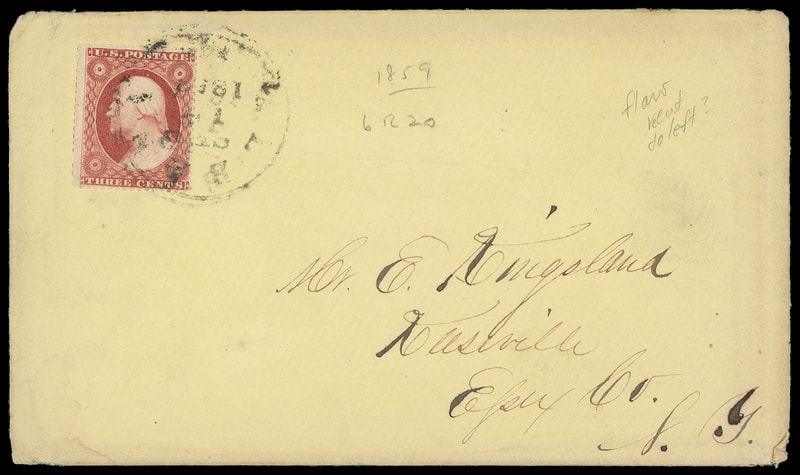 U.S. POSTAGE
THREE CENTS
1859
6 R 20
flaw
relief
to left?
Mr. E. Kingsland
Keeseville
Essex Co.
N. Y.